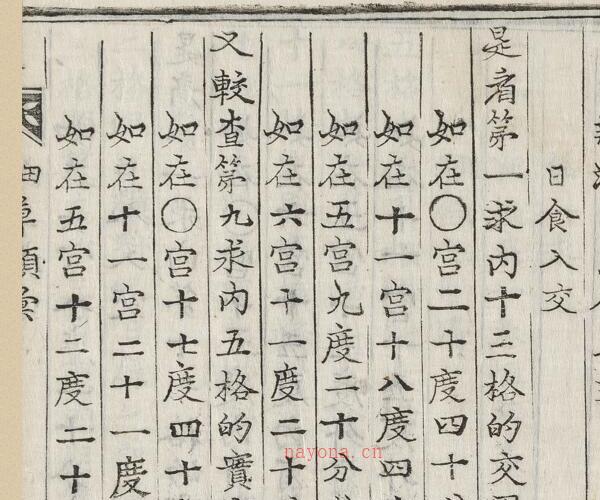 日食入交
是看第一求内十三格的交
如在〇宫二十度四十
如在十一宫十八度四
如在五宫九度二十分
如在六宫十一度二十
又較查第九求内五格的實
如在〇宫十七度四十
如在十一宫二十一度
如在五宫十二度二十
nayona.cn